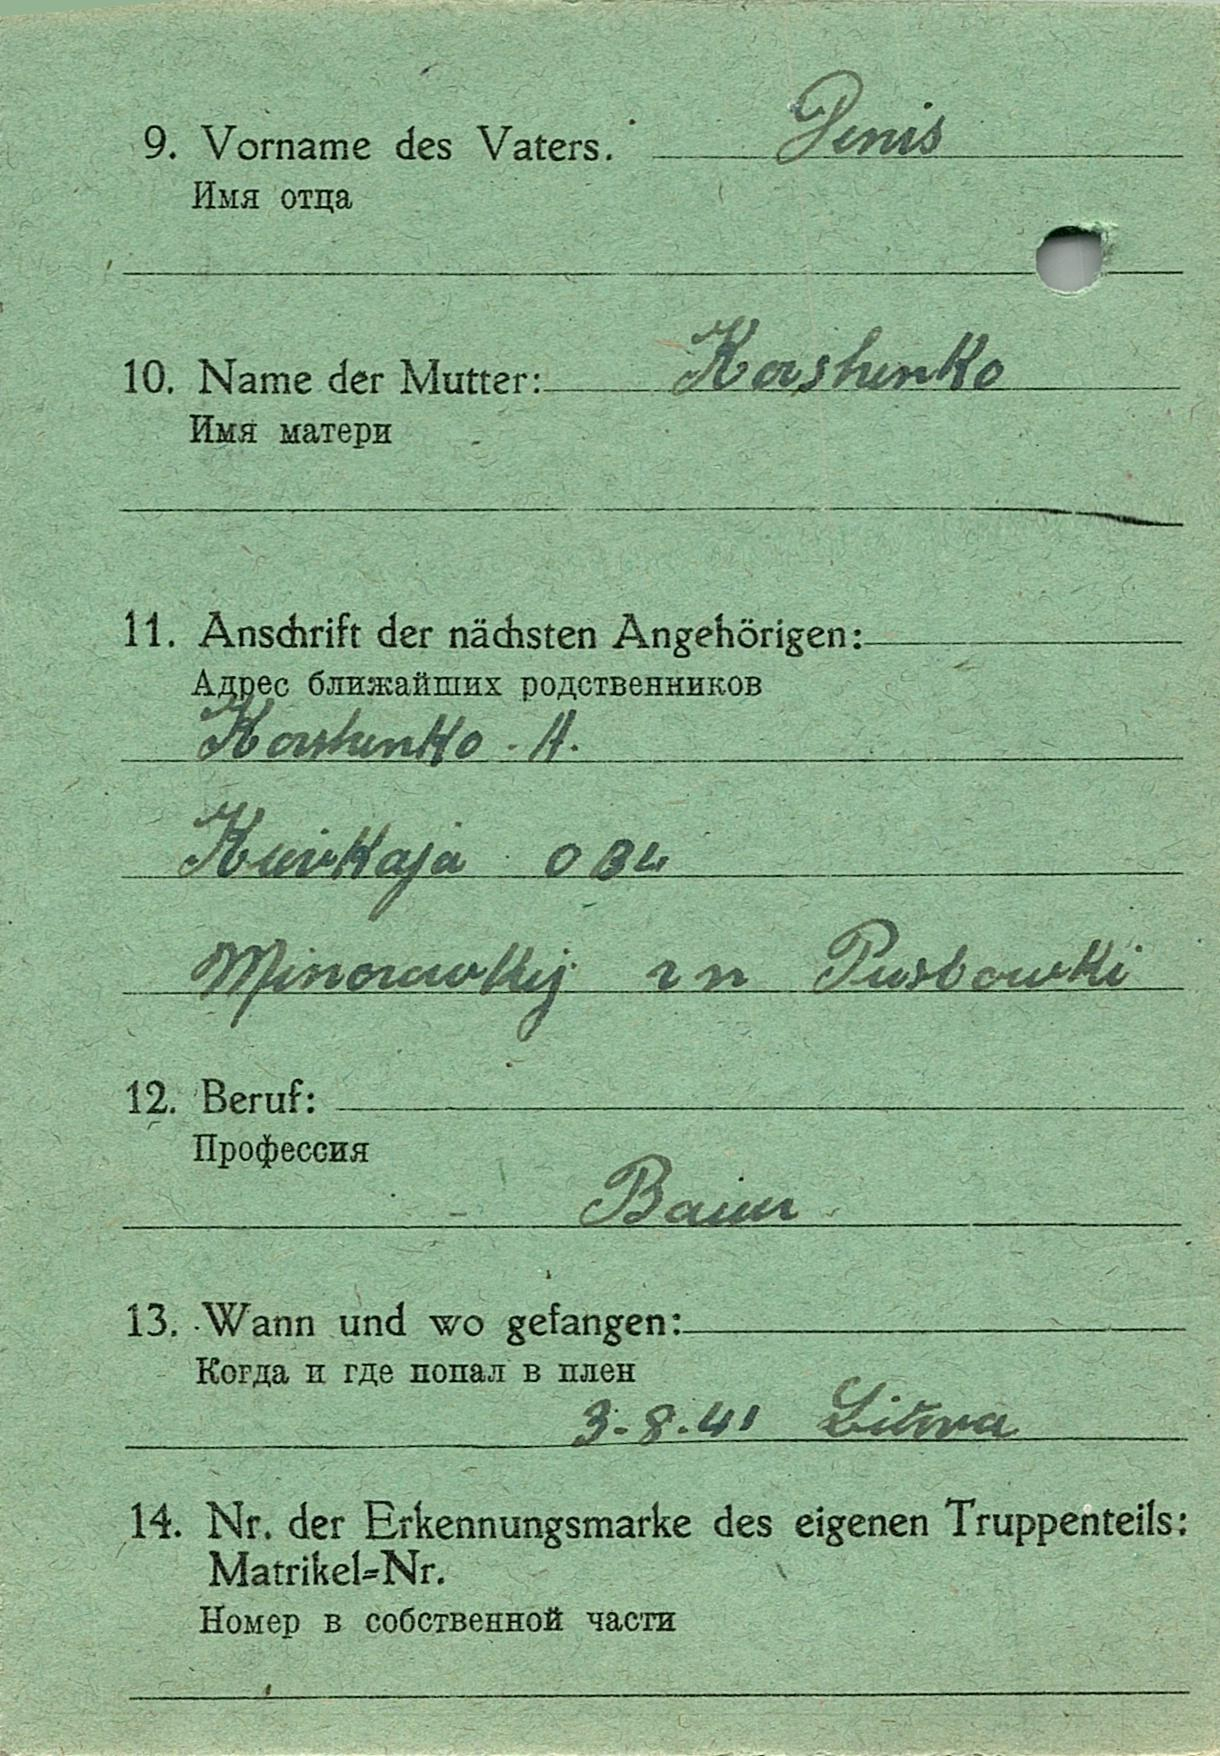 9. Vorname des Vaters. Denis
Имя отца
10. Name der Mutter: Kowshenko
Имя матери
11. Anschrift der nächsten Angehörigen:
Адрес ближайших родственников
A.
OBL
12. Beruf:
Профессия
Bauer
13. Wann und wo gefangen:
Когда и где попал в плен
3-8.41 Litwa
14. Nr. der Erkennungsmarke des eigenen Truppenteils:
Matrikel=Nr.
Номер в собственной части